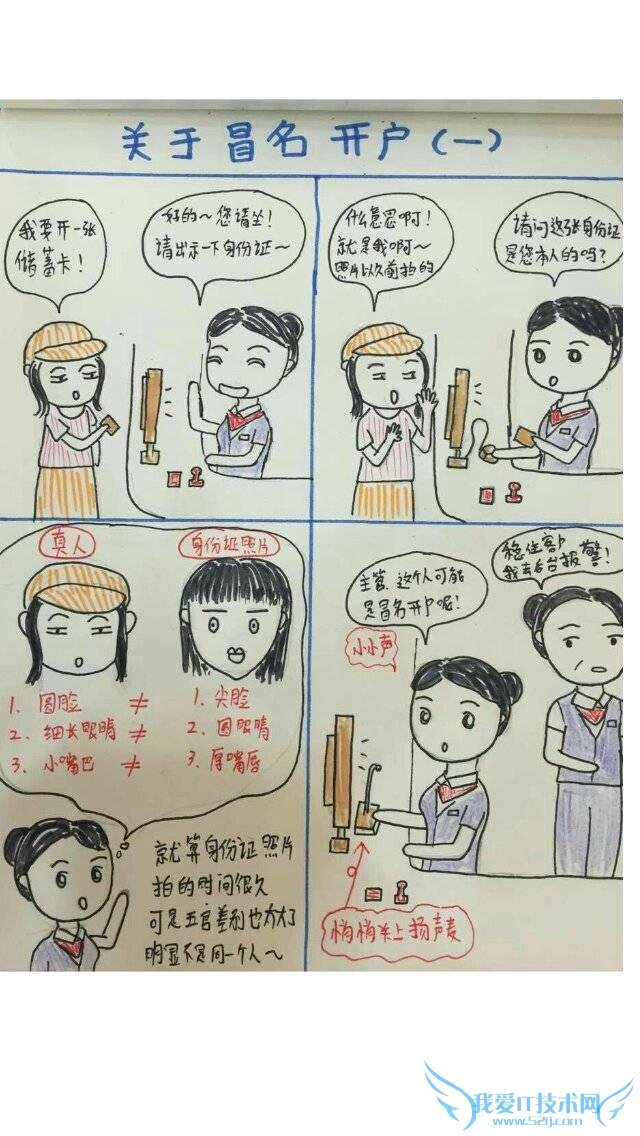 关于冒名开户(一)
我要开一张
储蓄卡!
好的~您请坐!
请出示一下身份证~
什么意思啊!
就是我啊~
照片以前拍的
请问这张身份证
是您本人的吗?
真人
身份证照片
1. 圆脸 ≠ 1. 尖脸
2. 细长眼睛 ≠ 2. 圆眼睛
3. 小嘴巴 ≠ 3. 厚嘴唇
就算身份证照片
拍的时间很久
可是五官差别也太大了
明显不是同一个人~
主管,这个人可能
是冒名开户呢!
小小声
稳住客户
我去后台报警!
悄悄关上扬声麦
我爱IT技术网
www.52ij.com